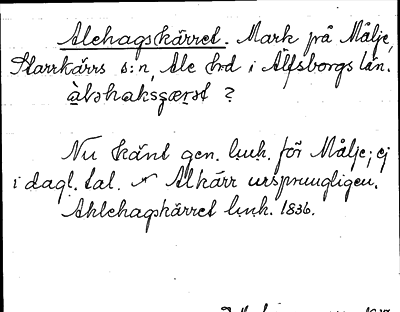 Alehagskärret. Mark på Målje,
Starrkärrs s:n, Ale hrd i Älfsborgs län.
àlshaksgærst ?
Nu känt gen. luk. för Målje; ej
i dagl. tal. Alkärr ursprungligen.
Ahlehagskärret luk. 1836.